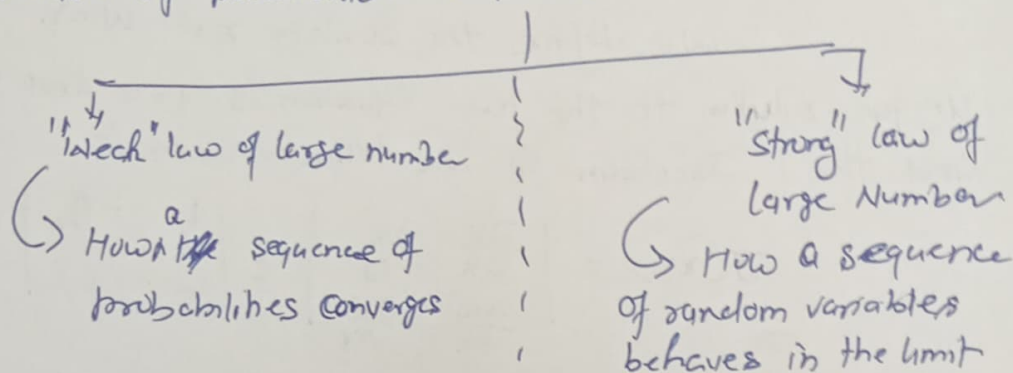 "Weck" law of large number
How a sequence of
probabilities converges
"Strong" law of
large Number
How a sequence
of random variables
behaves in the limit